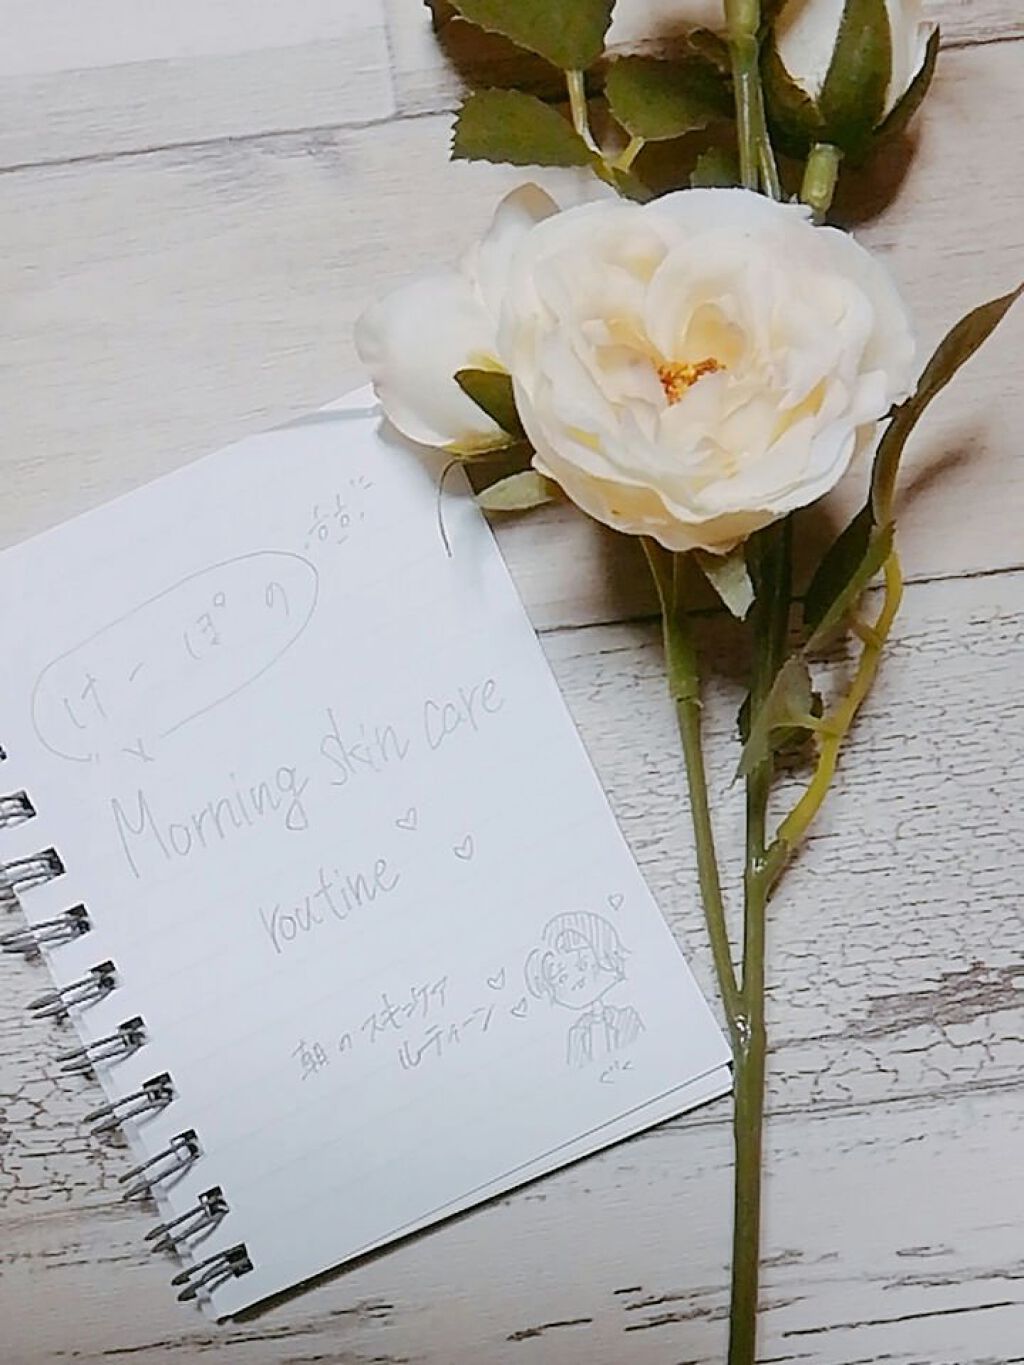 흠흠.
けーぽの
Morning skin care
routine
朝のスキンケア
ルティーン